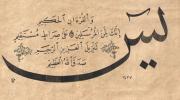 يس
والقرآن الحكيم
إنك لمن المرسلين على صراط مستقيم
تنزيل العزيز الرحيم
صدق الله العظيم